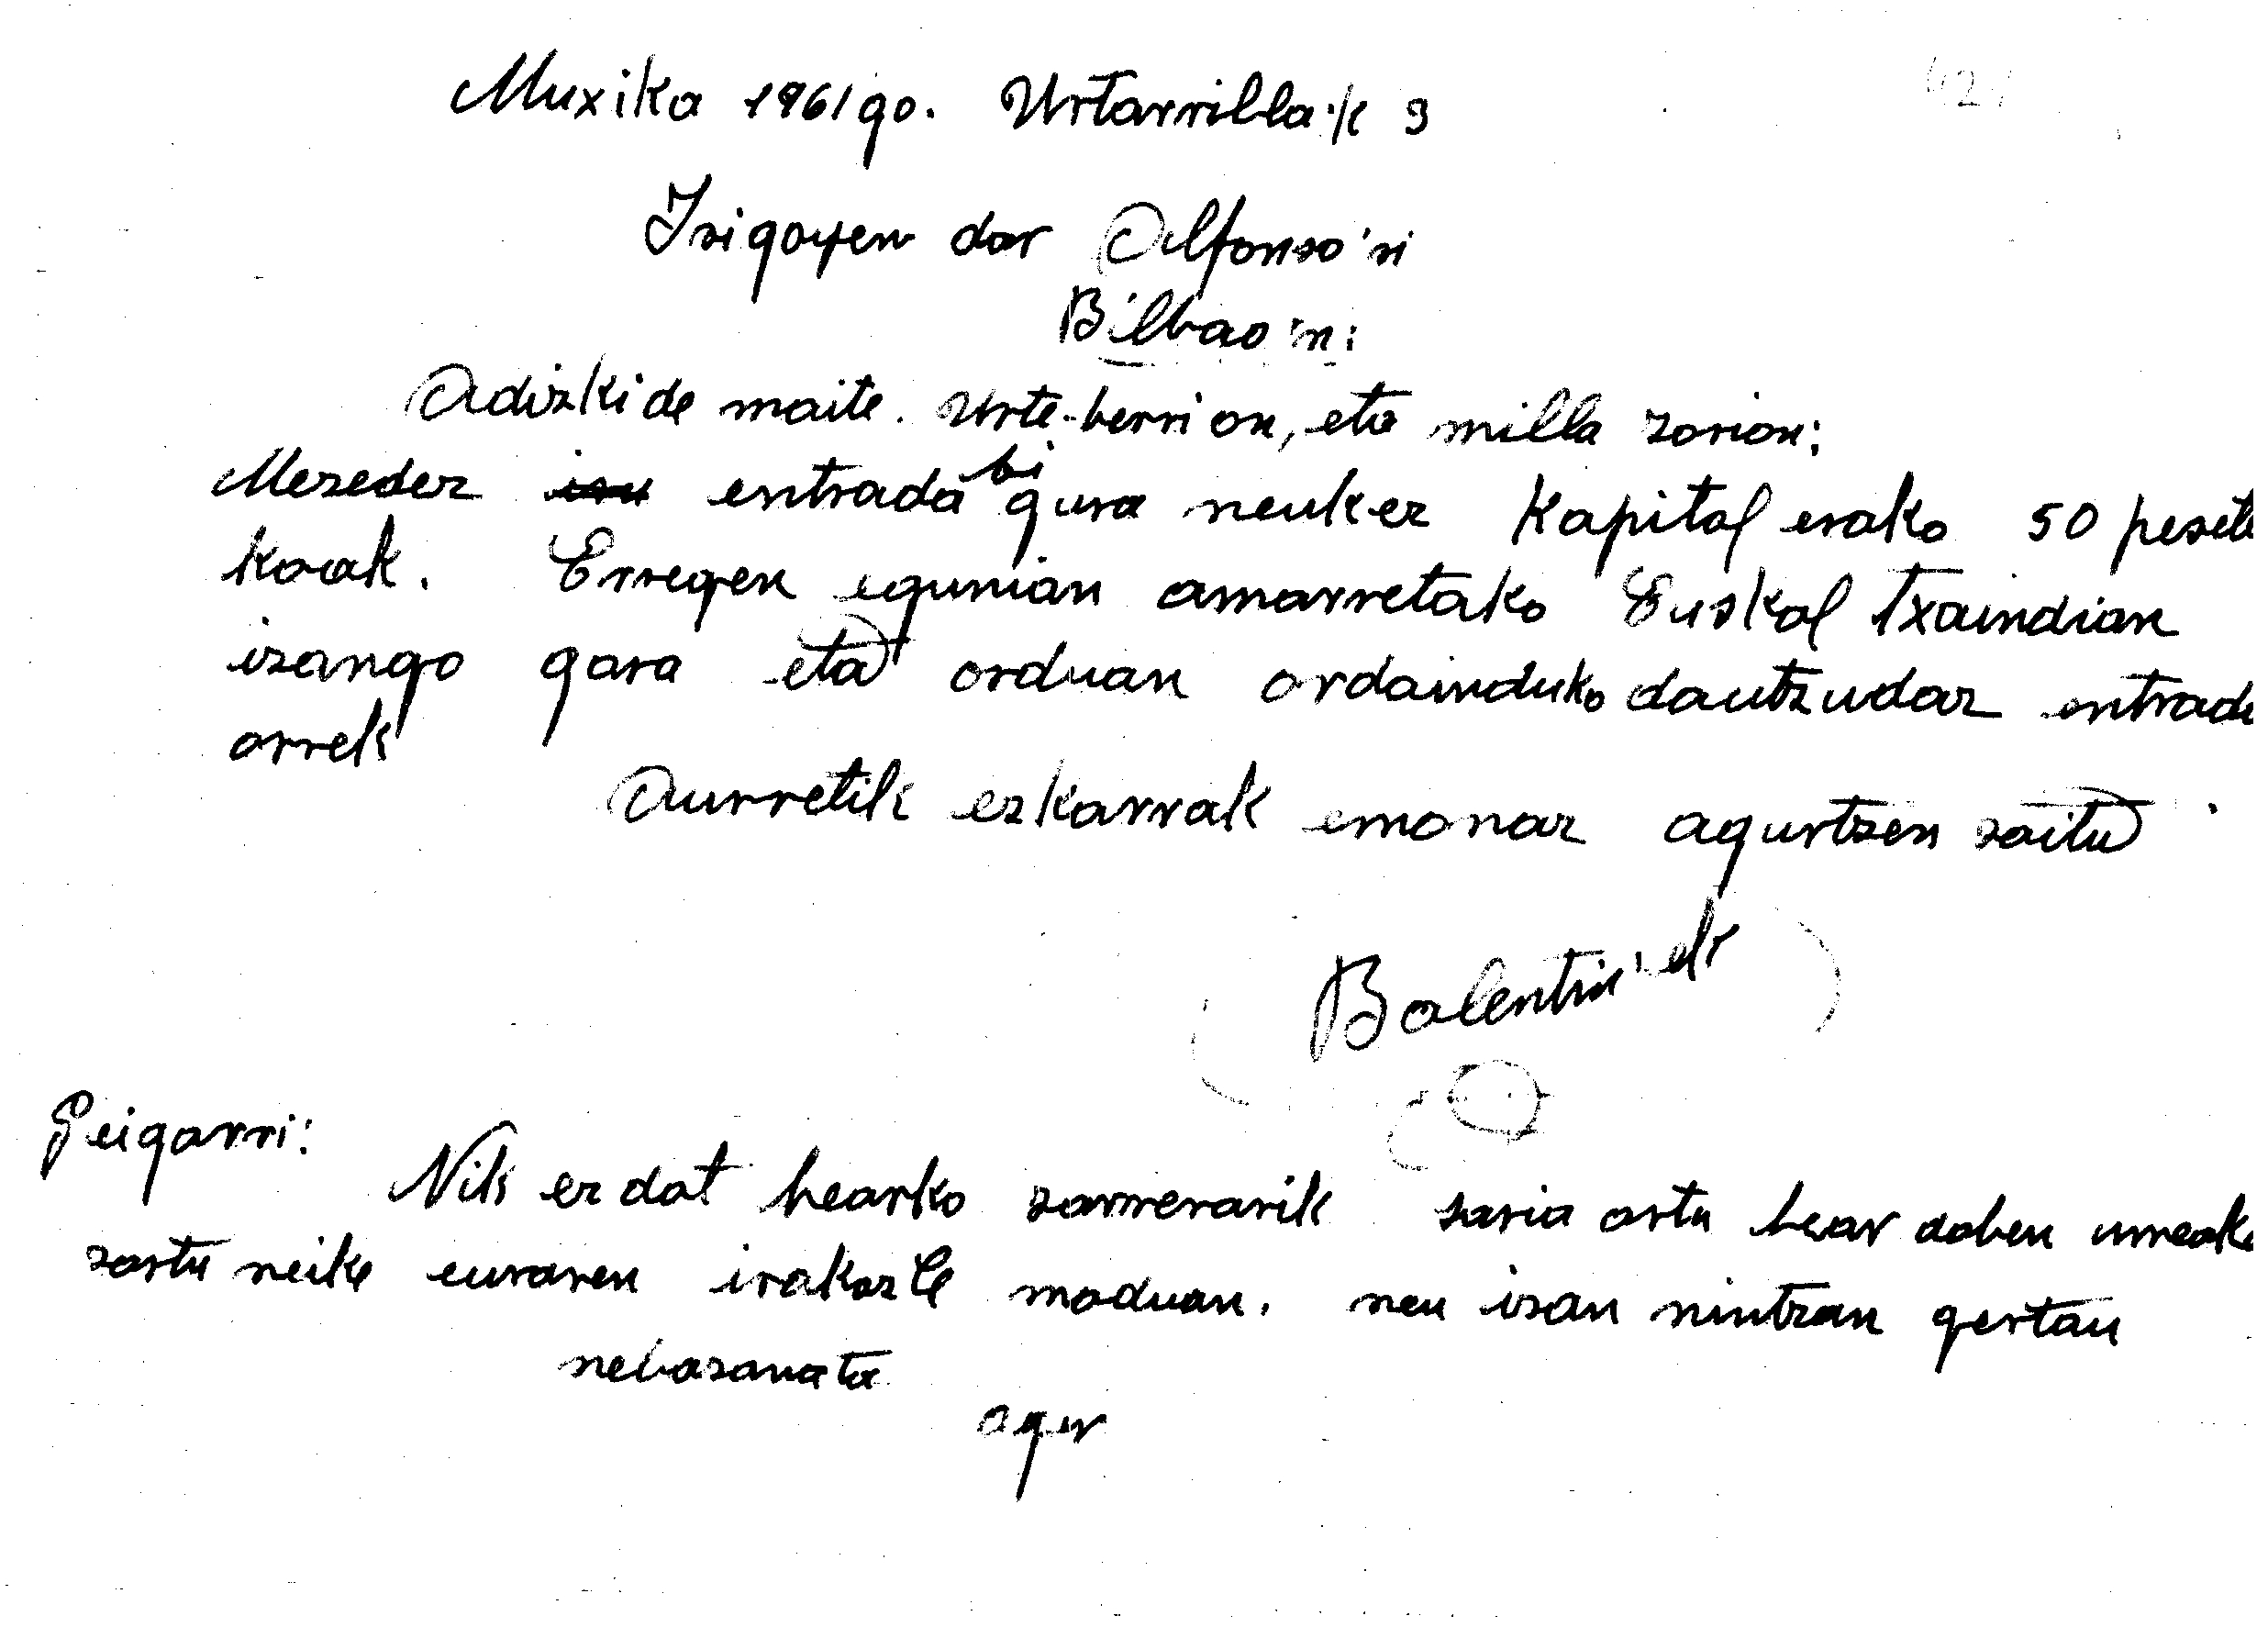 Muxika 1961go. Urtarrilla'k 3
Irigoyen dar Alfonso'ri
Bilbao'n:
Adizkide maite. Urte-berri on, eta milla zorion;
Mesedez entrada bi gura neukez Kapital erako 50 peseta
koak. Erregen egunian amarretako Euskal Txaindian
izango gara eta orduan ordainduko dautzudaz entrada
orrek
Aurretik ezkarrak emonaz agurtzen zaitu
Balentin'ek
Geigarri:
Nik ez dat bearko sarrerarik saria artu bear daben umeak
sartu neike euraren irakasle moduan. neu izan nintzan gertau
nebazanata
agur